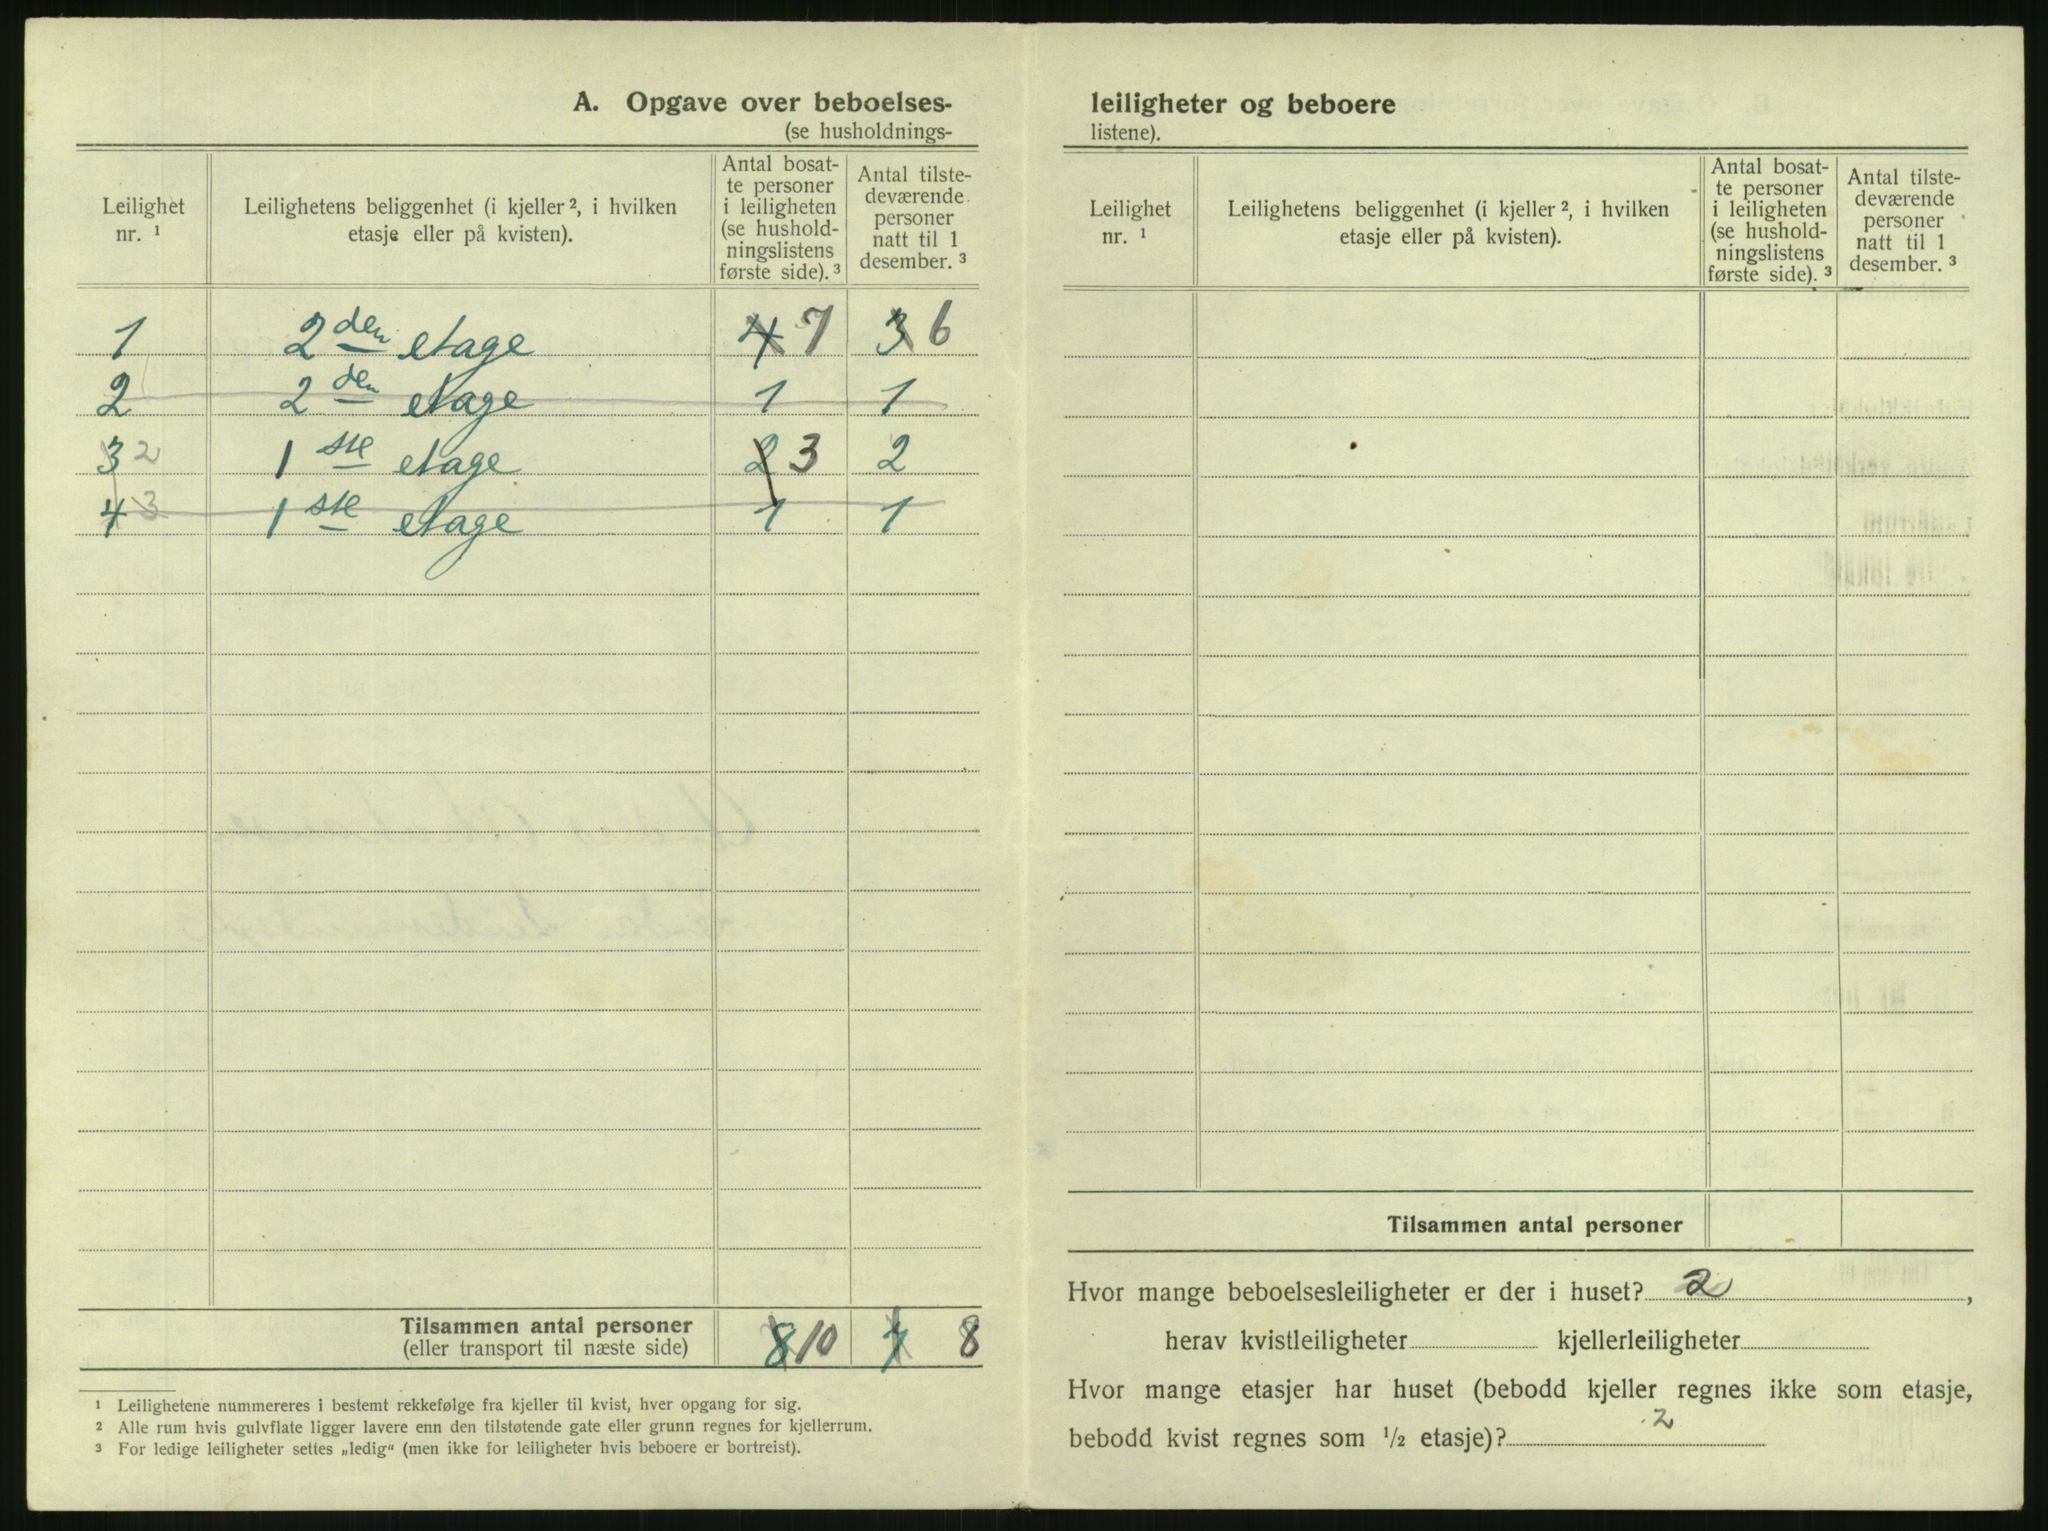 A. Opgave over beboelses-
(se husholdnings-
Leilighet nr. ¹
Leilighetens beliggenhet (i kjeller ², i hvilken etasje eller på kvisten).
Antal bosat-
te personer
i leiligheten
(se hushold-
ningslistens
første side). ³
Antal tilste-
deværende
personer
natt til 1
desember. ³
1 2den etage 4 7 3 6
2 2den etage 1 1
3 2 1ste etage 2 3 2
4 3 1ste etage 1 1
Tilsammen antal personer 8 10 7 8
(eller transport til næste side)
¹ Leilighetene nummereres i bestemt rekkefølge fra kjeller til kvist, hver opgang for sig.
² Alle rum hvis gulvflate ligger lavere enn den tilstøtende gate eller grunn regnes for kjellerrum.
³ For ledige leiligheter settes „ledig“ (men ikke for leiligheter hvis beboere er bortreist).
leiligheter og beboere
listene).
Leilighet nr. ¹
Leilighetens beliggenhet (i kjeller ², i hvilken etasje eller på kvisten).
Antal bosat-
te personer
i leiligheten
(se hushold-
ningslistens
første side). ³
Antal tilste-
deværende
personer
natt til 1
desember. ³
Tilsammen antal personer
Hvor mange beboelsesleiligheter er der i huset? 2,
herav kvistleiligheter kjellerleiligheter
Hvor mange etasjer har huset (bebodd kjeller regnes ikke som etasje,
bebodd kvist regnes som ½ etasje)? 2